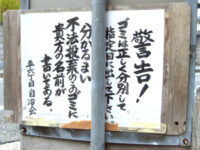 警告!
ゴミは正しく分別して
指定日に出して下さい。
分かるまい
不法投棄のゴミに
貴方の名前が
書いてある。
五六丁目自治会